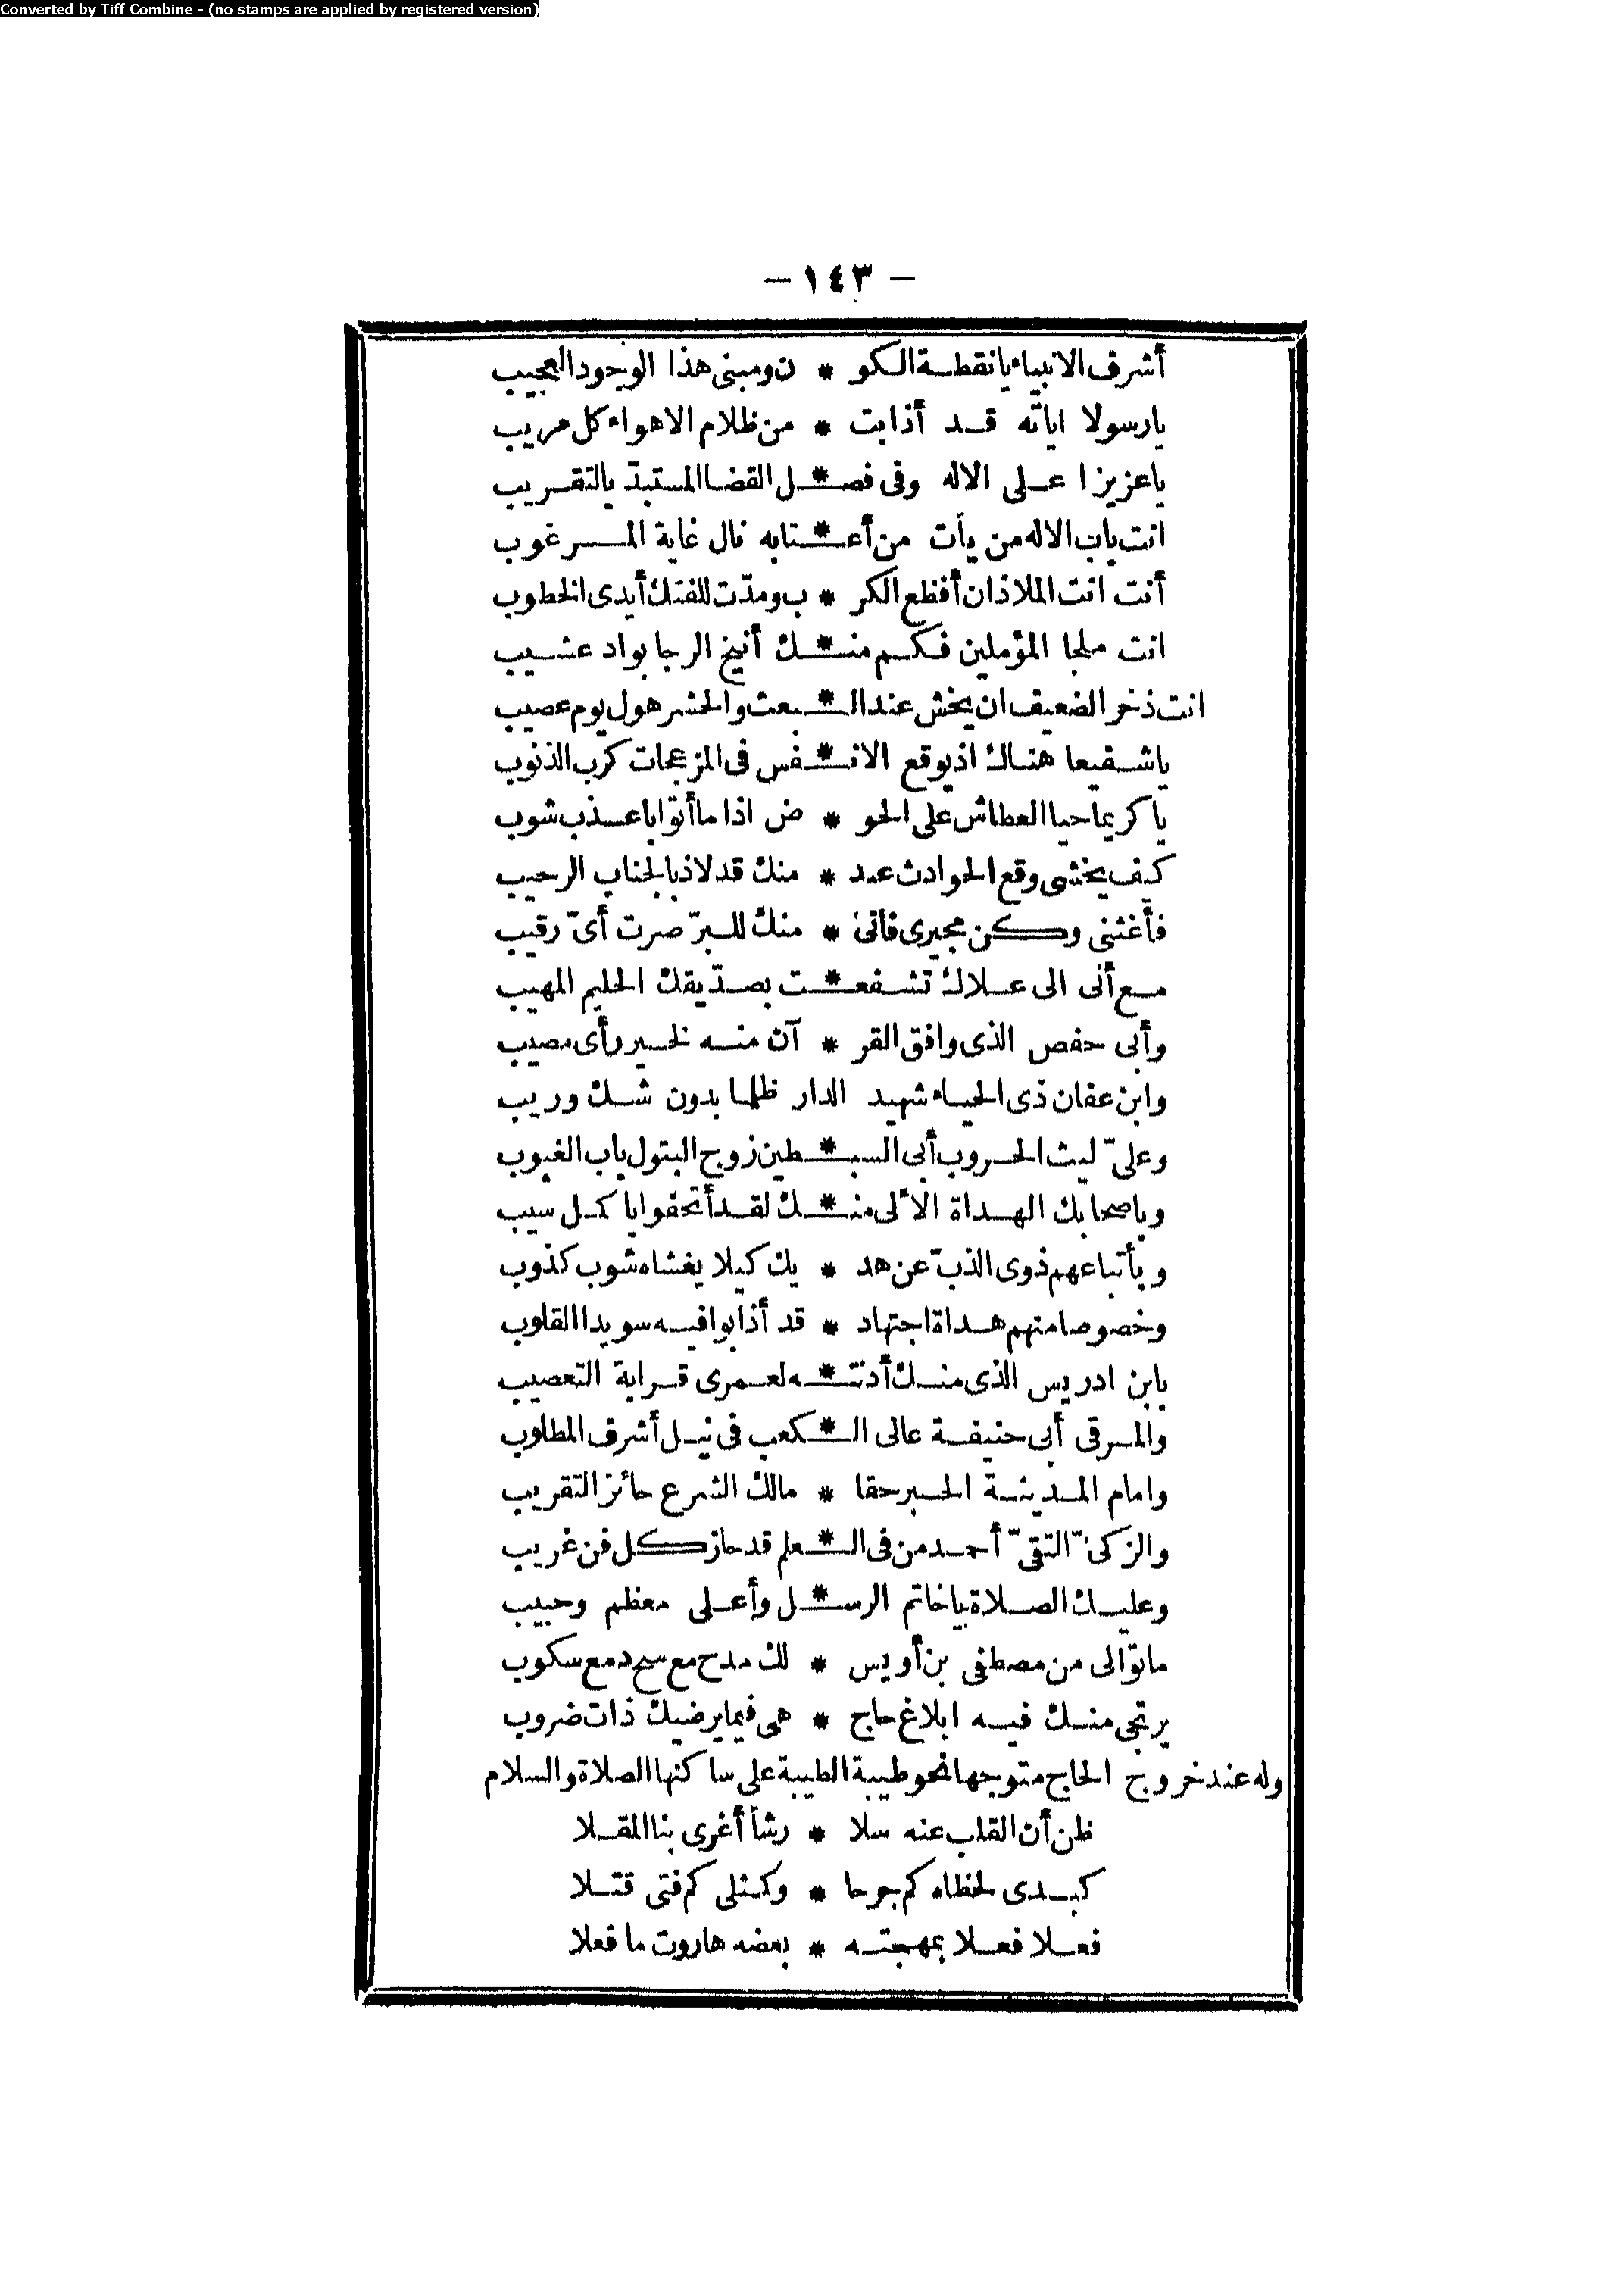 Converted by Tiff Combine - (no stamps are applied by registered version)
— ١٤٣ —
أشرف الانبياء يا نقطة الكو * ن ومبنى هذا الوجود العجيب
يا رسولا اياته قد أذابت * من ظلام الاهواء كل مريب
يا عزيزا على الاله وفى فصـ * ـل القضا المستبدّ بالتقريب
انت باب الاله من يأت من أعـ * ـتابه نال غاية المرغوب
أنت انت الملاذ ان أفظع الكر * ب ومدّت للفتك أيدى الخطوب
انت ملجا المؤملين فكم منـ * ـك أنيخ الرجا بواد عشيب
انت ذخر الضعيف ان يخش عند الـ * ـبعث والحشر هول يوم عصيب
يا شفيعا هناك اذ يوقع الانـ * ـفس فى المزعجات كرب الذنوب
يا كريما حيا العطاش على الحو * ض اذا ما أتوا باعذب شوب
كيف يخشى وقع الحوادث عبد * منك قد لاذ بالجناب الرحيب
فأغثنى وكن مجيرى فانى * منك للبرّ صرت أىّ رقيب
مع أنى الى علاك تشفعـ * ـت بصدّيقك الحليم المهيب
وأبى حفص الذى وافق القر * آن منه لخير رأى مصيب
وابن عفان ذى الحياء شهيد الدار ظلما بدون شك وريب
وعلىّ ليث الحروب أبى السبـ * ـطين زوج البتول باب الغيوب
وباصحابك الهداة الألى منـ * ـك لقد أتحفوا باكمل سيب
وبأتباعهم ذوى الذبّ عن هد * يك كيلا يغشاه شوب كذوب
وخصوصا منهم هداة اجتهاد * قد أذابوا فيه سويدا القلوب
بابن ادريس الذى منك أدنتـ * ـه لعمرى قرابة التعصيب
والمرقى أبى حنيفة عالى الـ * ـكعب فى نيل أشرف المطلوب
وامام المدينة الحبر حقا * مالك الشرع حائز التقريب
والزكىّ التقىّ أحمد من فى الـ * ـعلم قد حاز كل فن غريب
وعليك الصلاة يا خاتم الرسـ * ـل وأعلى معظم وحبيب
ما توالى من مصطفى بن أويس * لك مدح مع سح دمع سكوب
يرتجى منك فيه ابلاغ حاج * هى فيما يرضيك ذات ضروب
وله عند خروج الحاج متوجها نحو طيبة الطيبة على ساكنها الصلاة والسلام
ظن أن القلب عنه سلا * رشأ أغرى بنا المقلا
كبدى لحظاه كم جرحا * وكمثلى كم فتى قتلا
فعلا فعلا بمهجته * بعضه هاروت ما فعلا